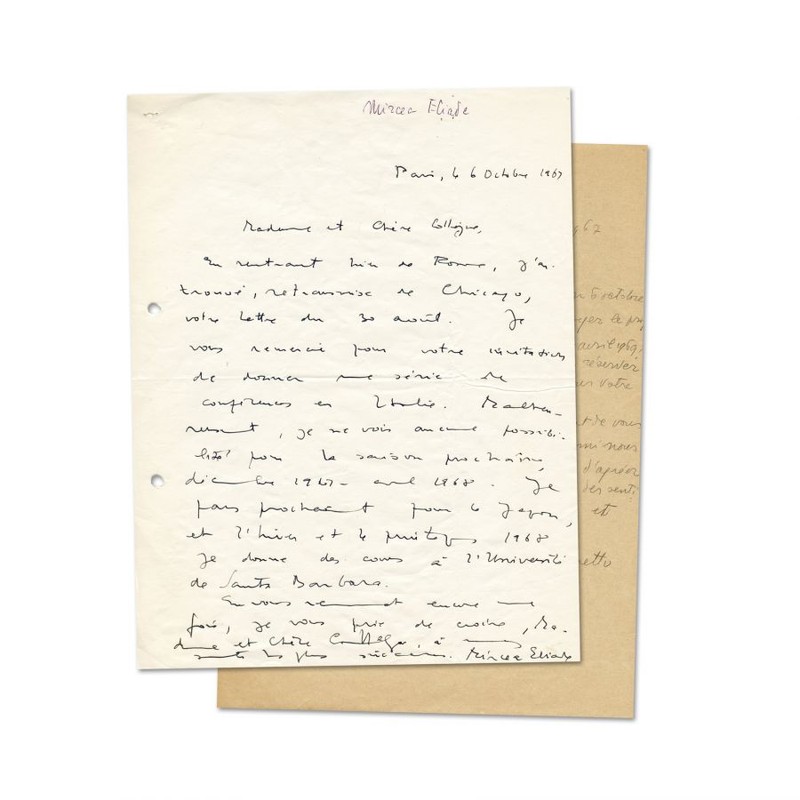 Mircea Eliade
Paris, le 6 Octobre 1967
Madame et Chère Collègue,
En rentrant hier de Rome, j'ai
trouvé, retransmise de Chicago,
votre lettre du 30 août. Je
vous remercie pour votre invitation
de donner une série de
conférences en Italie. Malheu-
reusement, je ne vois aucune possibi-
lité pour la saison prochaine,
décembre 1967 - avril 1968. Je
pars prochainement pour le Japon,
et l'hiver et le printemps 1968
je donne des cours à l'Université
de Santa Barbara.
En vous remerciant encore une
fois, je vous prie de croire, Ma-
dame et Chère Collègue, à mes
sentiments les plus sincères. Mircea Eliade
967
6 octobre
avril 1969
réserver
votre
de vous
nous
d'agréer
senti
et